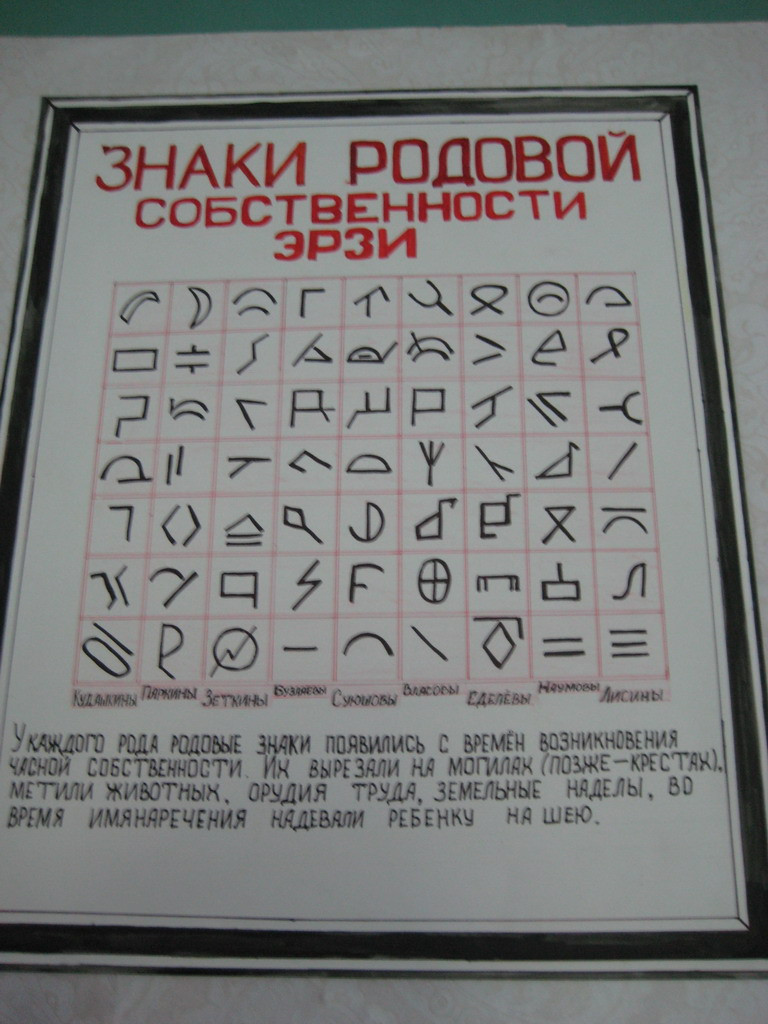 ЗНАКИ РОДОВОЙ
СОБСТВЕННОСТИ
ЭРЗИ
КУДАШКИНЫ ПАРКИНЫ ЗЕТКИНЫ БУЗАЕВЫ СУЮШОВЫ ВЛАСОВЫ ЕДЕЛЁВЫ НАУМОВЫ ЛИСИНЫ
У КАЖДОГО РОДА РОДОВЫЕ ЗНАКИ ПОЯВИЛИСЬ С ВРЕМЁН ВОЗНИКНОВЕНИЯ
ЧАСНОЙ СОБСТВЕННОСТИ. ИХ ВЫРЕЗАЛИ НА МОГИЛАХ (ПОЗЖЕ-КРЕСТАХ),
МЕТИЛИ ЖИВОТНЫХ, ОРУДИЯ ТРУДА, ЗЕМЕЛЬНЫЕ НАДЕЛЫ, ВО
ВРЕМЯ ИМЯНАРЕЧЕНИЯ НАДЕВАЛИ РЕБЕНКУ НА ШЕЮ.